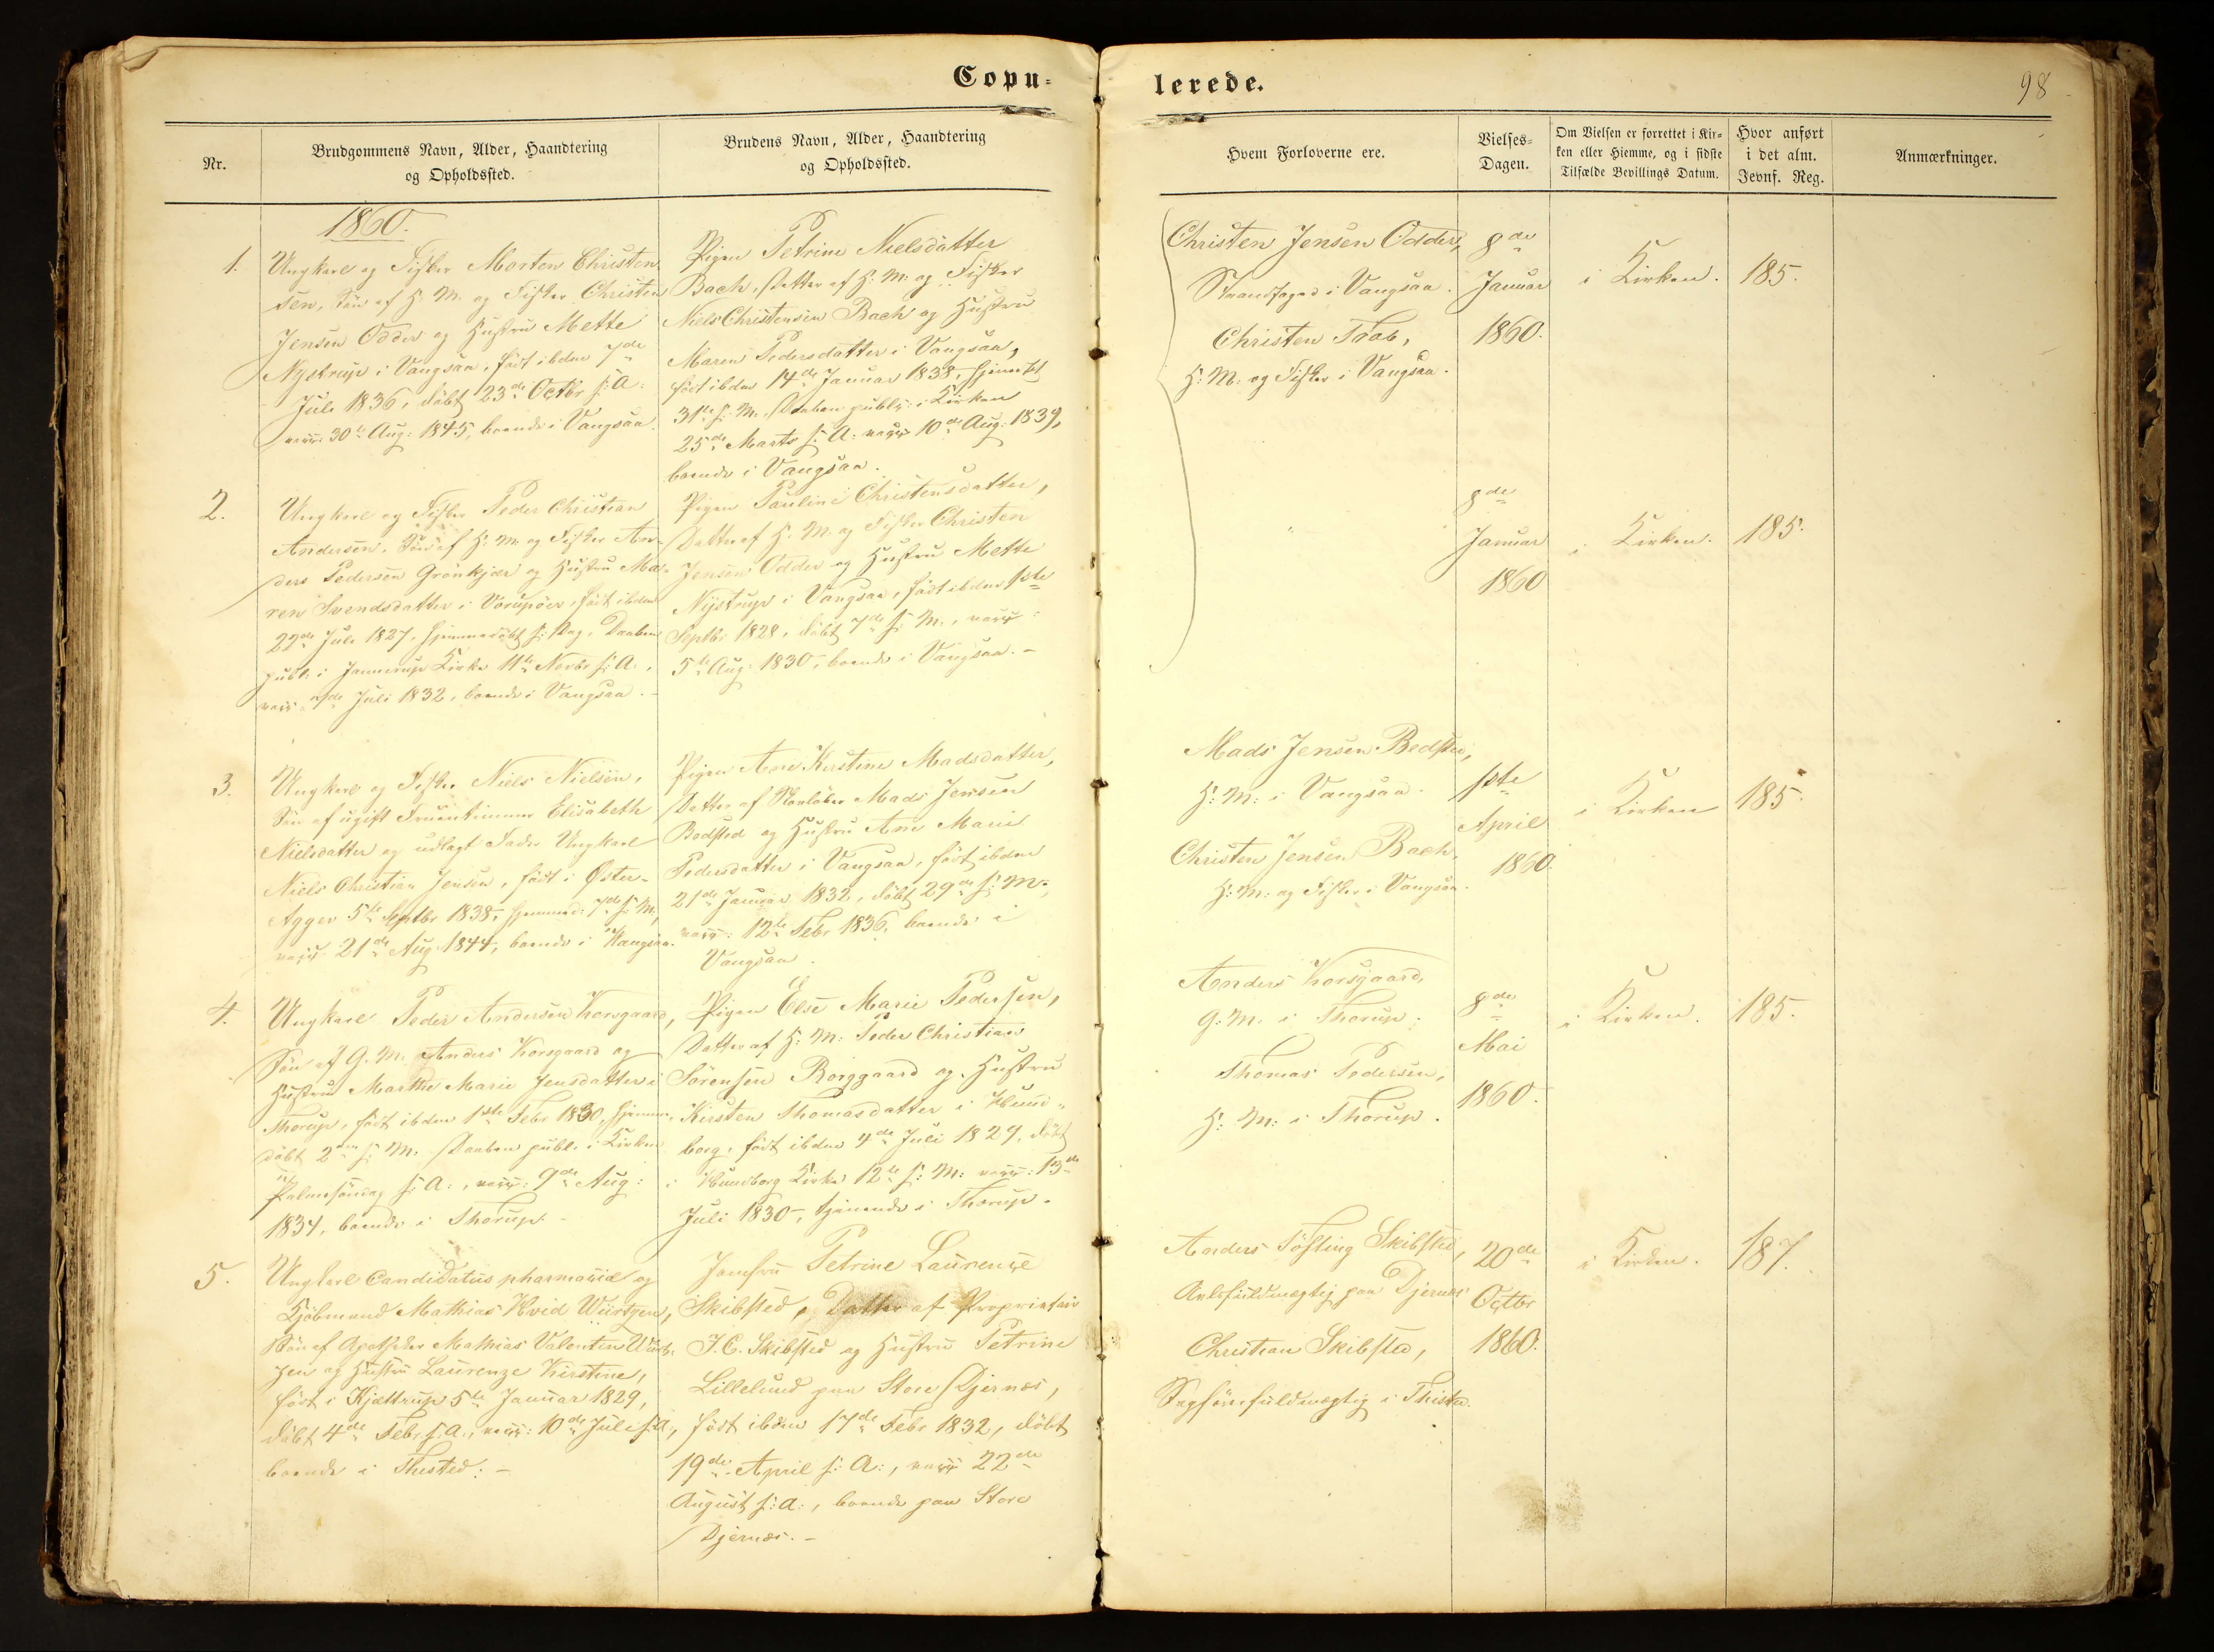 Copu-
lerede.
98
Nr.
Brudgommens Navn, Alder, Haandtering
og Opholdssted.
Brudens Navn, Alder, Haandtering
og Opholdssted.
Hvem Forloverne ere.
Vielses-
Dagen.
Om Vielsen er forrettet i Kir-
ken eller Hiemme, og i sidste
Tilfælde Bevillings Datum.
Hvor anført
i det alm.
Jevnf. Reg.
Anmærkninger.
1860.
1.
Ungkarl og Fisker Morten Christen-
sen, Søn af H. M. og Fisker Christen
Jensen Odder og Hustru Mette
Nystrup i Vangsaa, født ibdm 7de
Juli 1836, døbt 23de Octbr s: A:
vacc: 30te Aug: 1845, boende i Vangsaa.
Pigen Petrine Nielsdatter
Bach, Datter af H: M: og Fisker
Niels Christensen Bach og Hustru
Maren Pedersdatter i Vangsaa,
født ibdm 14de Januar 1838, hjemmedøbt
31te s: M., Daaben publ: i Kirken
25de Marts s: A: vacc 10de Aug: 1839,
boende i Vangsaa.
Christen Jensen Odder,
Strandfoged i Vangsaa.
Christen Trab,
H: M: og Fisker i Vangsaa.
8de
Januar
1860.
i Kirken.
185.
2.
Ungkarl og Fisker Peder Christian
Andersen, Søn af H: M: og Fisker An-
ders Pedersen Grönkjær og Hustru Ma-
ren Svendsdatter i Vorupöer, født ibdm
22de Juli 1827, hjemmedøbt s: Dag, Daaben
publ: i Jannerup Kirke 11te Novbr s: A:,
vacc: 7de Juli 1832, boende i Vangsaa.-
Pigen Pauline Christensdatter,
Datter af H. M. og Fisker Christen
Jensen Odder og Hustru Mette
Nystrup i Vangsaa, født ibdm 1ste
Septbr 1828, døbt 7de s: M., vacc:
5te Aug: 1830, boende i Vangsaa.-
"
8de
Januar
1860
i Kirken.
185.
3.
Ungkarl og Fisker Niels Nielsen,
Søn af ugift Fruentimmer Elisabeth
Nielsdatter og udlagt Fader Ungkarl
Niels Christian Jensen, født i Øster-
Agger 5te Septbr 1838, hjemmed: 7de s: M,
vacc 21de Aug 1844, boende i Vangsaa.
Pigen Ane Kirstine Madsdatter,
Datter af Mads Jensen
Bedsted og Hustru Ane Marie
Pedersdatter i Vangsaa, født ibdm
21de Januar 1832, døbt 29de s: M.,
vacc: 12te Febr 1836, boende i
Vangsaa.
Mads Jensen Bedsted,
H: M: i Vangsaa.
Christen Jensen Bach,
H: M: og Fisker i Vangsaa.
1ste
April
1860.
i Kirken
185.
4.
Ungkarl Peder Andersen Korsgaard,
Søn af G. M. Anders Korsgaard og
Hustru Marthe Marie Jensdatter i
Thorup, født ibdm 1ste Febr 1830, hjemme-
døbt 2den s: M. Daaben publ. i Kirken
Palmesøndag s: A:, vacc: 9de Aug:
1834, boende i Thorup.-
Pigen Else Marie Pedersen,
Datter af H: M: Peder Christian
Sörensen Borggaard og Hustru
Kirsten Thomasdatter i Hund-
borg, født ibdm 4de Juli 1829, døbt
i Hundborg Kirke 12te s: M: vacc: 13de
Juli 1830, tjenende i Thorup.
Anders Korsgaard,
G: M: i Thorup.
Thomas Pedersen,
H: M: i Thorup.
8de
Mai
1860.
i Kirken.
185.
5.
Ungkarl Candidatus pharmaciæ og
Kjøbmand Mathias Hvid Würtzen,
Søn af Apotheker Mathias Valentin Würt-
zen og Hustru Laurenze Kirstine,
født i Kjettrup 5te Januar 1829,
døbt 4de Febr s: A:, vacc: 10de Juli s: A:,
boende i Thisted.-
Jomfru Petrine Laurenze
Skibsted, Datter af Proprietair
J. C. Skibsted og Hustru Petrine
Lillelund paa Store Djernæs,
født ibdm 17de Febr 1832, døbt
19de April s: A:, vacc 22de
August s: A:, boende paa Store
Djernæs.-
Anders Töfting Skibsted,
Avlsfuldmægtig paa Djernæs
Christian Skibsted,
Sagförerfuldmægtig i Thisted.
20de
Octbr
1860.
i Kirken.
187.